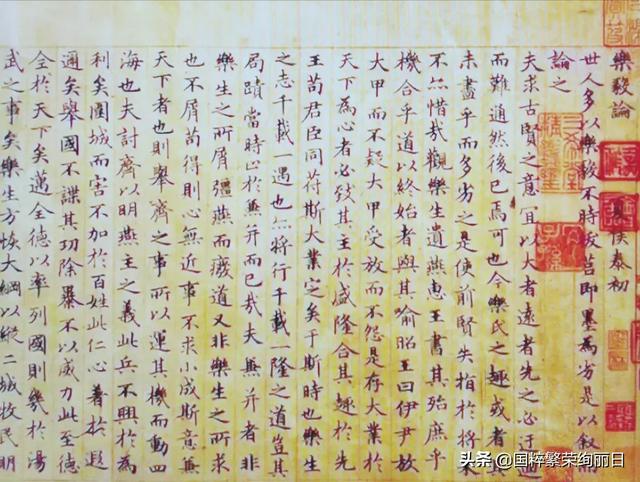 樂毅論 夏侯泰初
世人多以樂毅不時拔莒即墨為劣是以叙而
論之
夫求古賢之意宜以大者遠者先之必迂迴
而難通然後已焉可也今樂氏之趣或者其
未盡乎而多劣之是使前賢失指於將來
不亦惜哉觀樂生遺燕惠王書其殆庶乎
機合乎道以終始者與其喻昭王曰伊尹放
大甲而不疑大甲受放而不怨是存大業於
天下為心者必致其主於盛隆合其趣於先
王苟君臣同苻斯大業定矣于斯時也樂生
之志千載一遇也亦將行千載一隆之道豈其
局蹟當時止於兼并而已哉夫兼并者非
樂生之所屑彊燕而廢道又非樂生之所求
也不屑苟得則心無近事不求小成斯意兼
天下者也則舉齊之事所以運其機而動四
海也夫討齊以明燕主之義此兵不興於為
利矣圍城而害不加於百姓此仁心著於遐
邇矣舉國不謀其功除暴不以威力此至德
令於天下矣邁全德以率列國則幾於湯
武之事矣樂生方恢大綱以縱二城牧民明
头条 @国粹繁荣绚丽日